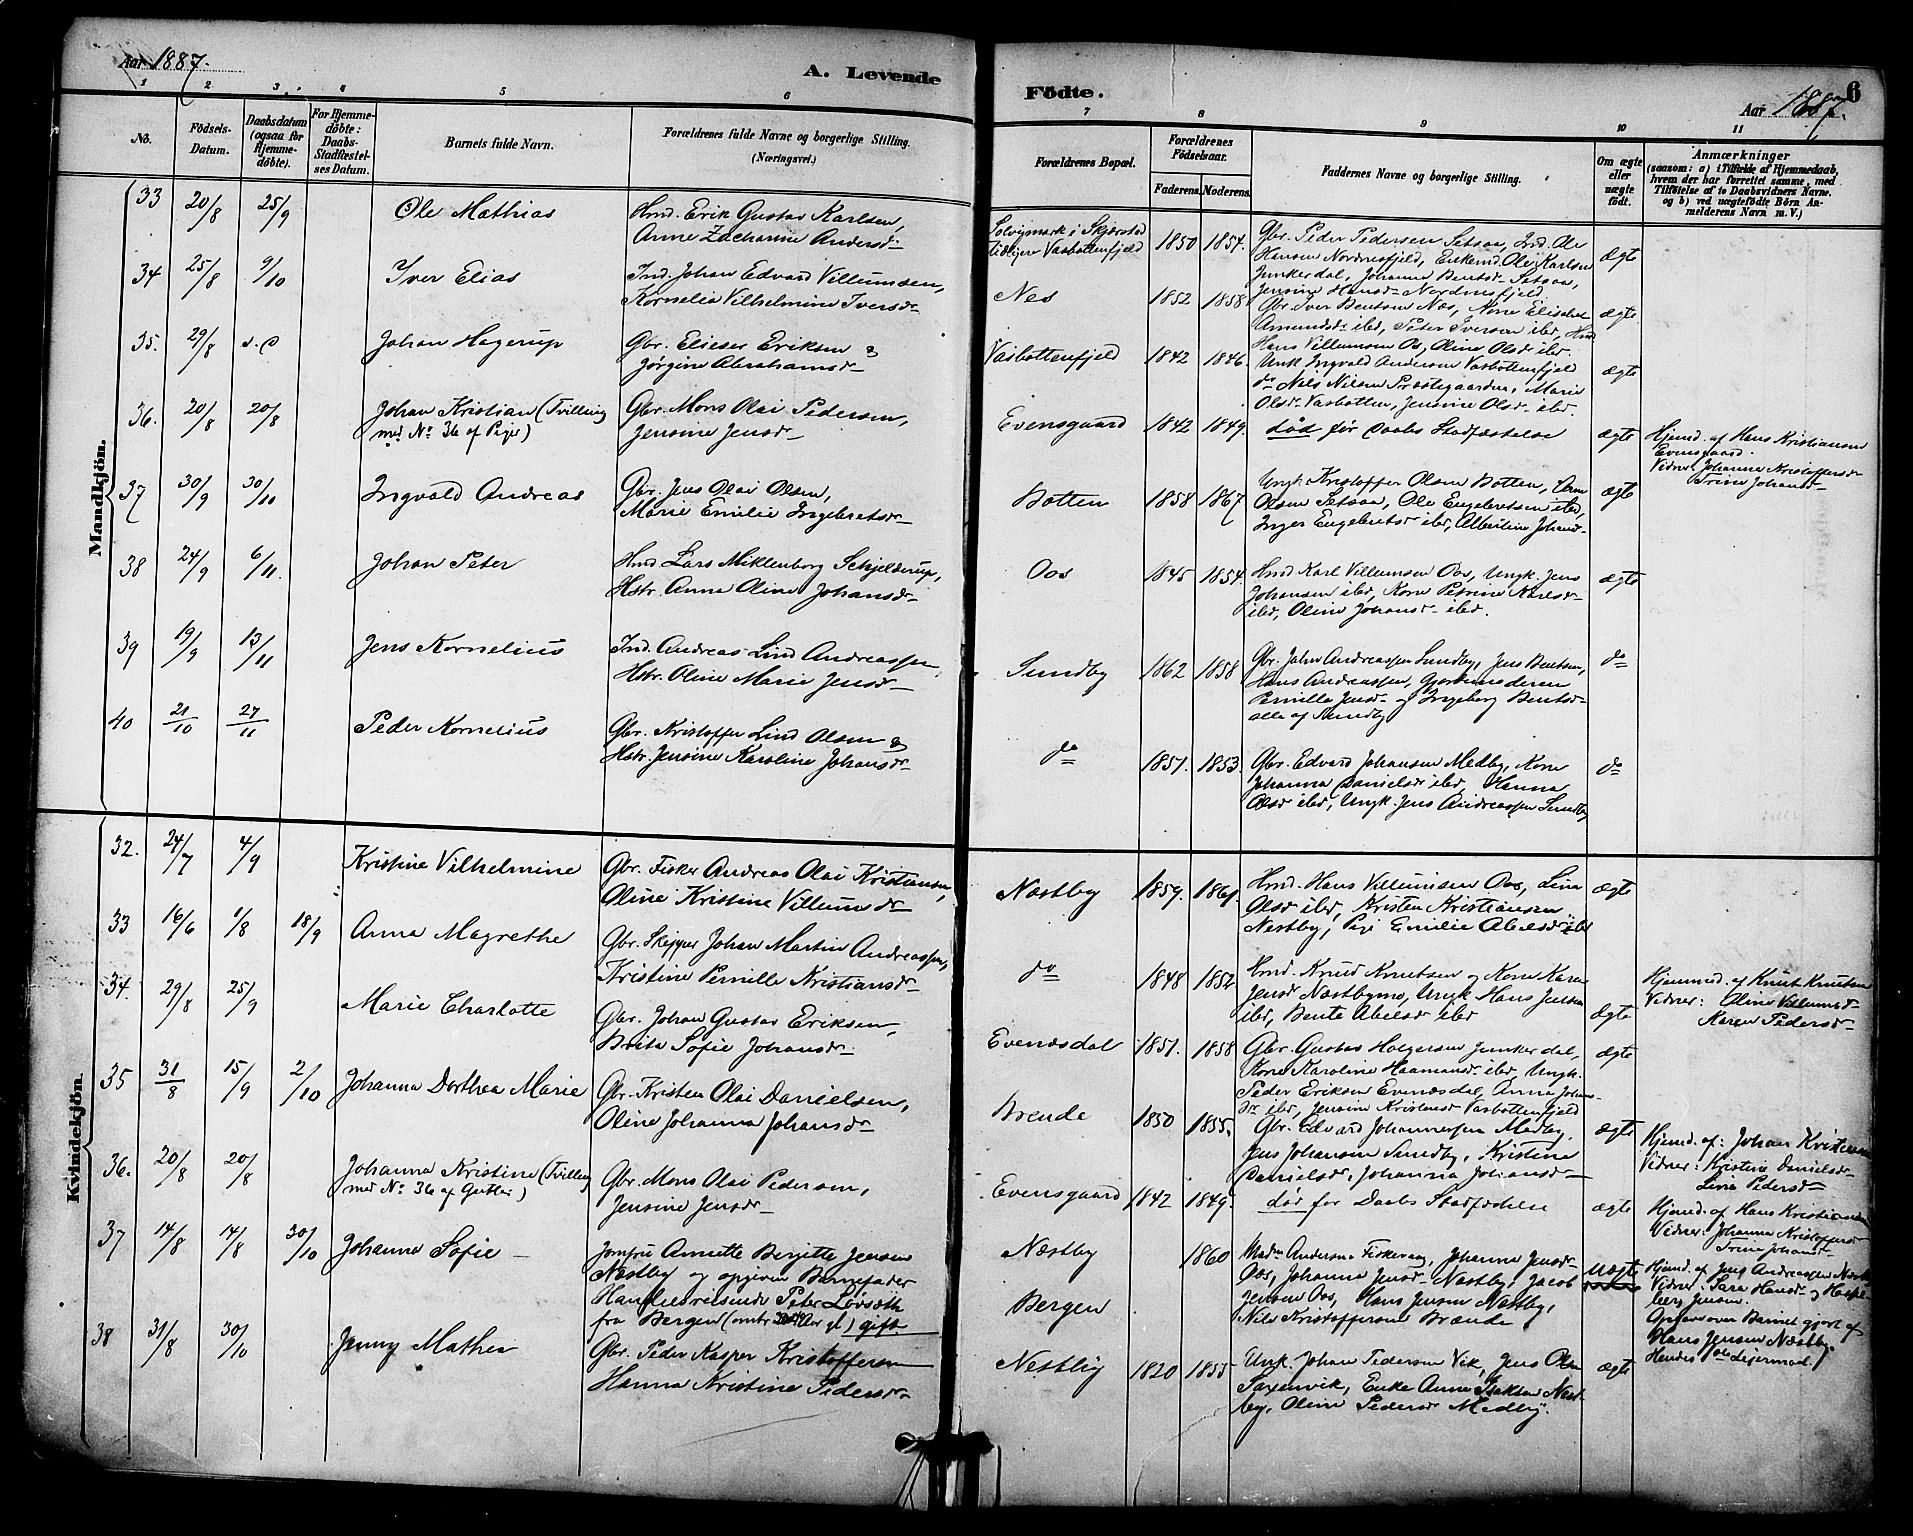 Aar 1887.
A. Levende
Födte.
Aar 1887.
6
1 2 3. 4 5 6 7 8 9 10 11
No.
Födsels-
Datum.
Daabsdatum
(ogsaa for
Hjemme-
döbte).
For Hjemme-
döbte:
Daabs-
Stadfæstel-
ses Datum.
Barnets fulde Navn.
Forældrenes fulde Navne og borgerlige Stilling.
(Næringsvei.)
Forældrenes Bopæl.
Forældrenes
Födselsaar.
Faderens.
Moderens.
Faddernes Navne og borgerlige Stilling.
Om ægte
eller
uægte
födt.
Anmærkninger
(saasom: a) i Tilfælde af Hjemmedaab,
hvem der har forrettet samme, med
Tilföielse af to Daabsvidners Navne.
og b) ved uægtefödte Börn An-
melderens Navn m. V.)
Mandkjön.
33 20/8 25/9 Ole Mathias
Hmd. Erik Gustav Karlsen,
Anne Zacharine Andersdr
Solvigmark i Skjærstad
Tidligere Vasbottenfjeld
1850 1854.
Gbr. Peder Pedersen Setsaa, Ind. Ole
Hansen Nordnesfjeld, Enkemd Ole Karlsen
Junkerdal, Johanna Bentsdr Setsaa,
Jensine Hansdr Nordnesfjeld
ægte
34 25/8 9/10 Iver Elias
Ind. Johan Edvard Villumsen,
Kornelia Vilhelmine Iversdr
Nes
1852 1858
Gbr. Iver Bentsen Næs, Kone Elisabet
Amundsdr ibd, Peter Iversen ibd, Hmd
Hans Villumsen Os, Oline Olsdr ibd.
ægte
35. 29/8 s. D Johan Hagerup
Gbr. Elieser Eriksen &
Jørgine Abrahamsdr
Vasbottenfjeld
1842 1846.
Unk Ingvald Andersen Vasbottenfjeld
do Nils Nilsen Præstegaarden, Marie
Olsdr Vasbotten, Jensine Olsdr ibd.
ægte
36. 20/8 20/8 Johan Kristian (Tvilling
med No 36 af Piger)
Gbr. Mons Olai Pedersen,
Jensine Jensdr
Evensgaard
1842 1849.
död før Daabs Stadfæstelse
ægte
Hjemd. af Hans Kristiansen
Evensgaard.
Vidner Johanna Kristoffersdr
Trine Johansdr
37 30/9 30/10 Ingvald Andreas
Gbr. Jens Olai Olsen,
Marie Emilie Ingebretsdr
Botten
1858 1867
Ungk. Kristoffer Olsen Botten,
Olsen Setsaa, Ole Engebretsen ibd,
Inger Engebretsdr ibd, Albertine Johansdr
ægte
38 24/9 6/11. Johan Peter
Hmd Lars Miklenborg Schjelderup,
Hstr. Anna Oline Johansdr
Oos
1845 1854.
Hmd Karl Villumsen Oos, Ungk. Jens
Johansen ibd, Kone Petrine Karlsdr
ibd, Oline Johansdr ibd.
ægte
39 19/9 13/11 Jens Kornelius
Ind. Andreas Lind Andreassen,
Hstr. Oline Marie Jensdr
Sundby
1862 1858
Gbr. John Andreassen Sundby, Jens Bentsen,
Hans Andreassen,
Pernille Jensdr og Ingeborg Bentsdr
alle af Sundby
do
40 21/10 27/11 Peder Kornelius
Gbr. Kristoffer Lind Olsen &
Hstr. Jensine Karoline Johansdr
do
1851. 1853.
Gbr. Edvard Johansen Medby, Kone
Johanna Danielsdr ibd, Hanna
Olsdr ibd, Ungk. Jens Andreassen Sundby
do
Kvindekjön.
32. 24/7 4/9 Kristine Vilhelmine
Gbr. Fisker Andreas Olai Kristiansen,
Oline Kristine Villumsdr
Næstby
1859. 1861.
Hmd. Hans Villumsen Oos, Lina
Olsdr ibd, Kristen Kristiansen
Nestby, Pige Emilie Abelsdr ibd
ægte
33 16/6 1/8 18/9 Anna Magrethe
Gbr. Skipper Johan Martin Andreassen,
Kristine Pernille Kristiansdr
do
1848 1852
Hmd. Knud Knutsen og Kone Karen
Jensdr Næstbymo, Ungk Hans Jensen
ibd, Bente Abelsdr ibd
ægte
Hjemmed. af Knut Knutsen
Vidner: Oline Villumsdr
Karen Pedersdr
34. 29/8 25/9 Marie Charlotte
Gbr. Johan Gustav Eriksen,
Brita Sofie Johansdr.
Evenesdal
1851. 1858
Gbr. Gustav Holgersen Junkerdal,
Kone Karoline Haamansdr ibd, Ungk.
Peder Eriksen Evenesdal, Anna Johans-
dr ibd, Jensine Kristensdr Vasbottenfjeld
ægte
35 31/8 15/9 2/10 Johanna Dorthea Marie
Gbr. Kristen Olai Danielsen,
Oline Johanna Johansdr
Brende
1850 1855.
Gbr. Edvard Johannessen Medby,
Jens Johansen Sundby, Kristine
Danielsdr, Johanna Johansdr
ægte
Hjemd. af: Johan Kristensen
Vidner: Kristine Danielsdr
Lina Pedersdr
36. 20/8 20/8 Johanna Kristine (Tvilling
med No 36 af Gutter)
Gbr. Mons Olai Pedersen,
Jensine Jensdr
Evensgaard
1842 1849.
död før Daabs Stadfæstelse
ægte
Hjemd. af Hans Kristiansen
Vidner: Johanna Kristoffersdr
Trine Johansdr
37 14/8 14/8 30/10 Johanna Sofie
Jomfru Annette Bergitte Jensen
Nestby og opgiven Barnefader
Handelsreisende Peter Løvseth
fra Bergen (omtr Aar gl) gift
Næstby
Bergen
1860
Madm Andersen Fiskevaag, Johanna Jensdr
Oos, Johanna Jensdr Nestby, Jacob
Jensen Oos, Hans Jensen Nestby,
Nils Kristoffersen Brænde
uægte
Hjemd. af Jens Andreassen Næstby
Vidner: Sara Hansdr og Haspe-
berg Jensen.
Opgave over Barnet gjort af
Hans Jensen Næstby.
Hendes Leiermaal.
38 31/8 30/10 Jenny Mathea
Gbr. Peder Kasper Kristoffersen
Hanna Kristine Pedersdr
Nestby
1820 1855
Unk. Johan Pedersen Vik, Jens Olsen
Saxenvik, Enke Anne Isaksen Næst-
by, Oline Pedersdr Medby.
ægte